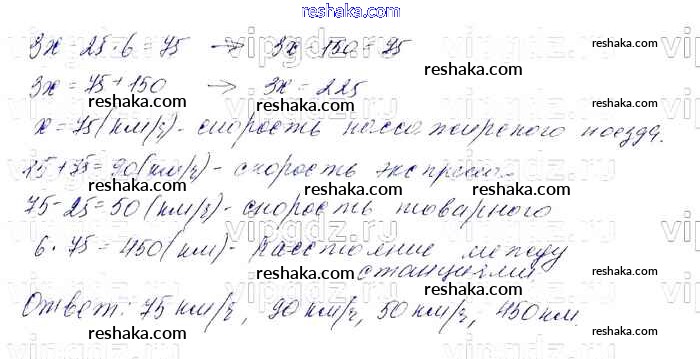 reshaka.com
3x - 25·6 = 75 → 3x - 150 = 75
reshaka.com reshaka.com
3x = 75 + 150 → 3x = 225
reshaka.com reshaka.com
x = 75 (км/ч) - скорость пассажирского поезда.
15 + 75 = 90 (км/ч) - скорость экспресса
reshaka.com reshaka.com
75 - 25 = 50 (км/ч) - скорость товарного
reshaka.com reshaka.com
6 · 75 = 450 (км) - расстояние между
станциями
reshaka.com reshaka.com
Ответ: 75 км/ч, 90 км/ч, 50 км/ч, 450 км.
reshaka.com reshaka.com
reshaka.com